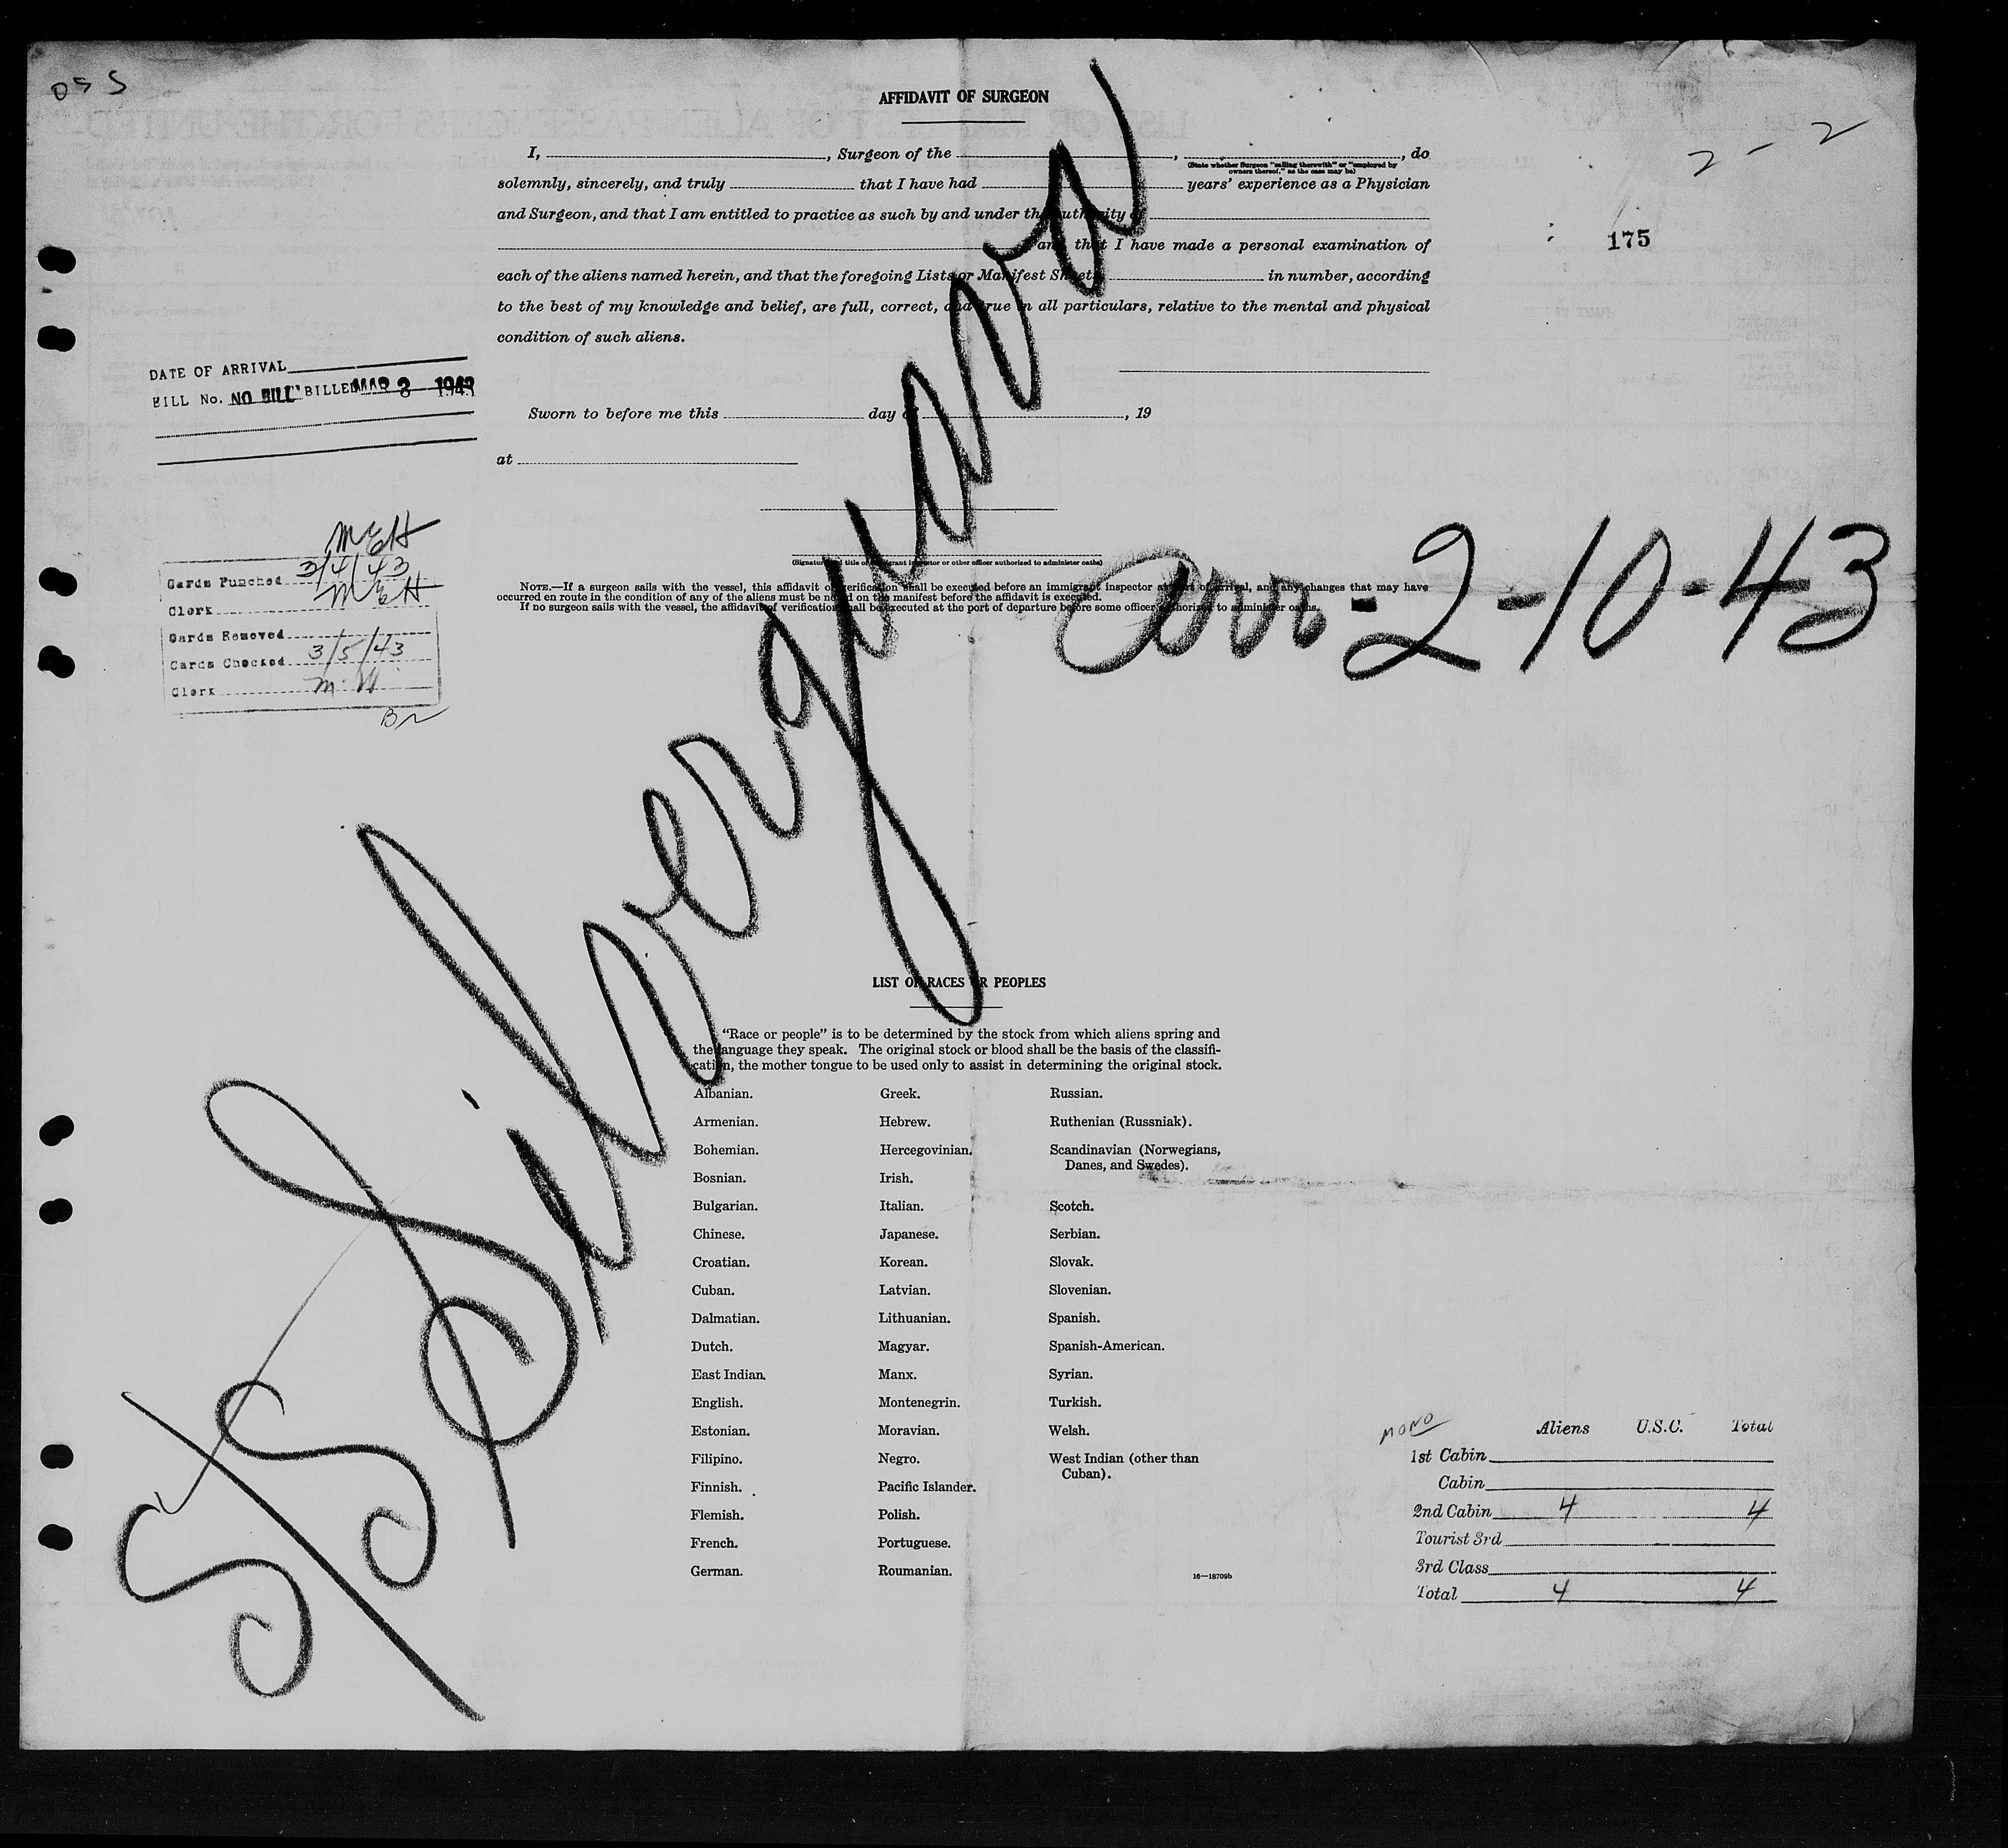 AFFIDAVIT OF SURGEON
2 - 2
I, , Surgeon of the , , do
(State whether Surgeon "sailing therewith" or "employed by
owners thereof," as the case may be)
solemnly, sincerely, and truly that I have had years' experience as a Physician
and Surgeon, and that I am entitled to practice as such by and under the authority of
175
and that I have made a personal examination of
each of the aliens named herein, and that the foregoing Lists or Manifest Sheets, in number, according
to the best of my knowledge and belief, are full, correct, and true in all particulars, relative to the mental and physical
condition of such aliens.
DATE OF ARRIVAL
BILL No. NO BILL BILLED MAR 3 1943
Sworn to before me this day of , 19
at
(Signature and title of immigrant inspector or other officer authorized to administer oaths)
NOTE.—If a surgeon sails with the vessel, this affidavit of verification shall be executed before an immigrant inspector at port of arrival, and any changes that may have
occurred en route in the condition of any of the aliens must be noted on the manifest before the affidavit is executed.
If no surgeon sails with the vessel, the affidavit of verification shall be executed at the port of departure before some officer authorized to administer oaths.
MEH
Cards Punched 3/4/43
Clerk MEH
Cards Removed
Cards Checked 3/5/43
Clerk
arr-2-10-43
S/S Silverguava
LIST OF RACES OR PEOPLES
"Race or people" is to be determined by the stock from which aliens spring and
the language they speak. The original stock or blood shall be the basis of the classifi-
cation, the mother tongue to be used only to assist in determining the original stock.
Albanian.
Armenian.
Bohemian.
Bosnian.
Bulgarian.
Chinese.
Croatian.
Cuban.
Dalmatian.
Dutch.
East Indian.
English.
Estonian.
Filipino.
Finnish.
Flemish.
French.
German.
Greek.
Hebrew.
Hercegovinian.
Irish.
Italian.
Japanese.
Korean.
Latvian.
Lithuanian.
Magyar.
Manx.
Montenegrin.
Moravian.
Negro.
Pacific Islander.
Polish.
Portuguese.
Roumanian.
Russian.
Ruthenian (Russniak).
Scandinavian (Norwegians,
Danes, and Swedes).
Scotch.
Serbian.
Slovak.
Slovenian.
Spanish.
Spanish-American.
Syrian.
Turkish.
Welsh.
West Indian (other than
Cuban).
16—18709b
MONO
Aliens U.S.C. Total
1st Cabin
Cabin
2nd Cabin 4 4
Tourist 3rd
3rd Class
Total 4 4